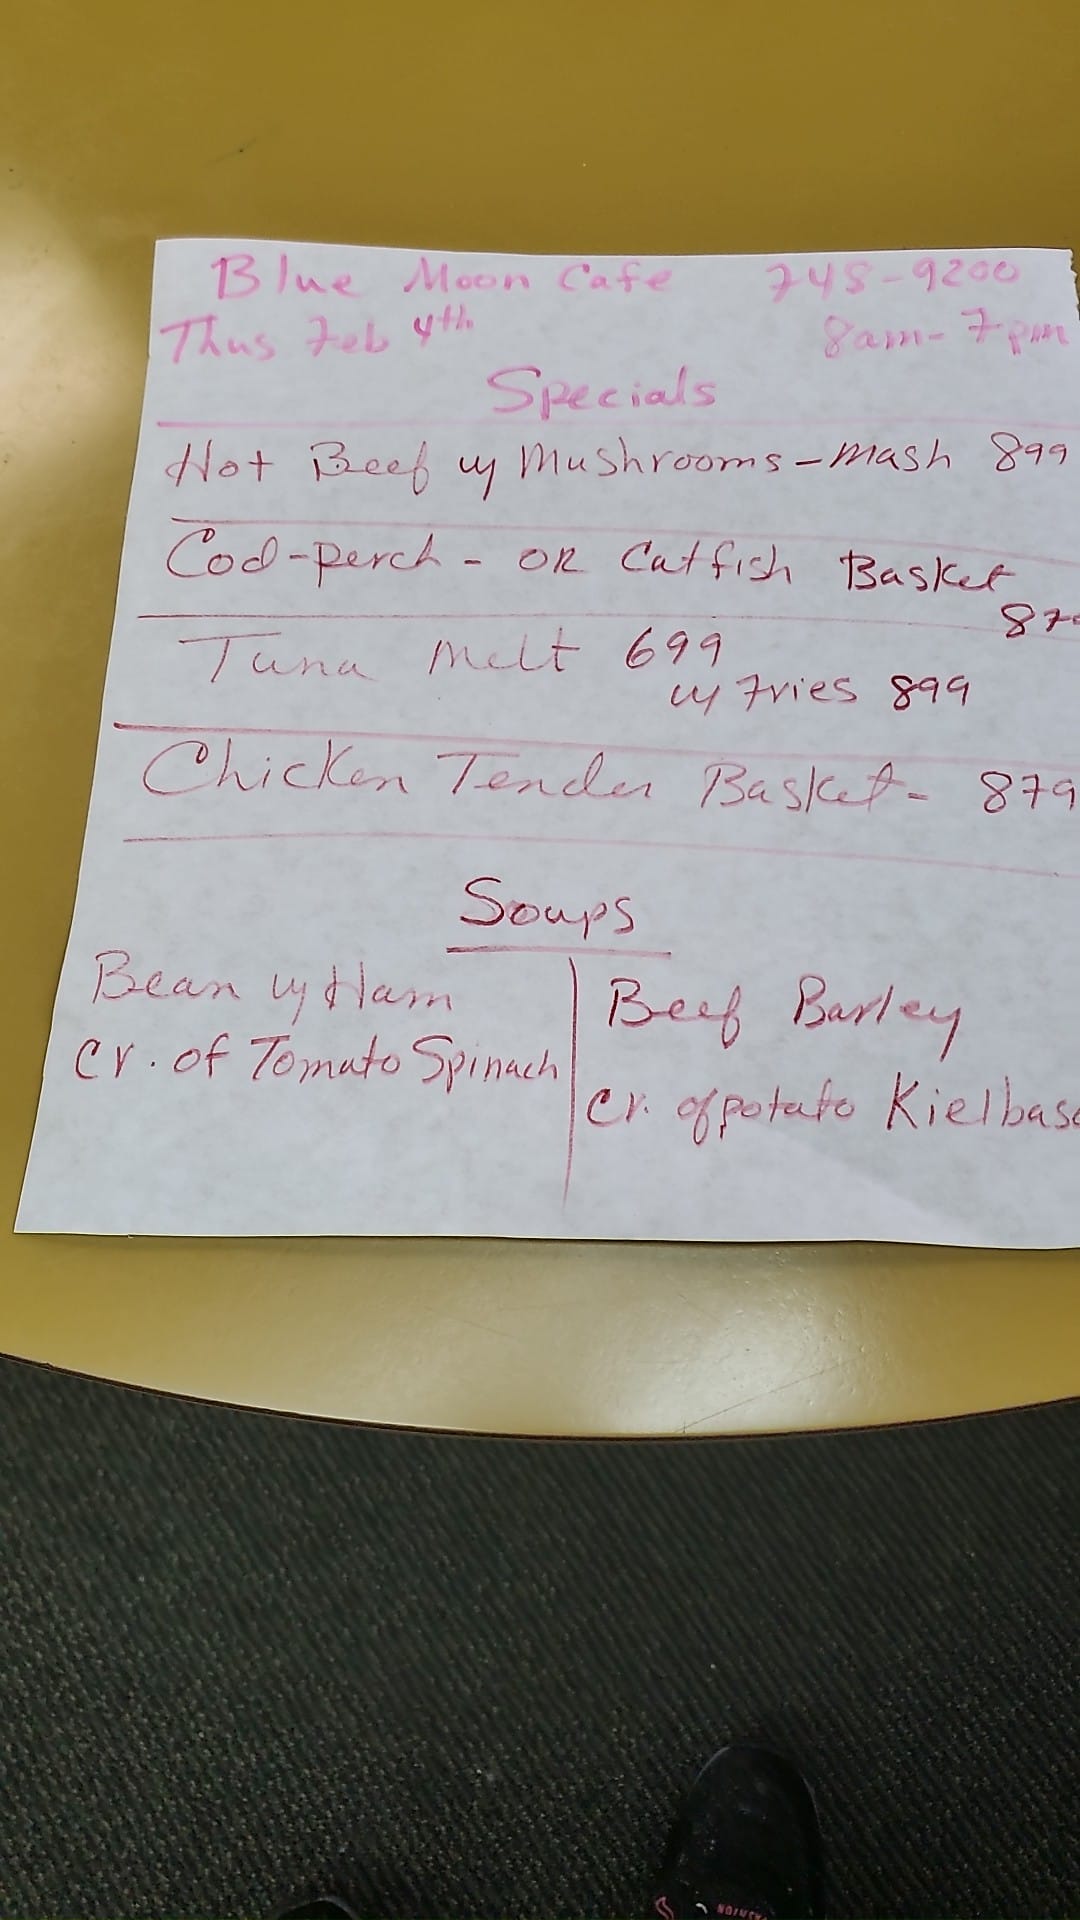 Blue Moon Cafe 745-9200
Thus Feb 4th 8am-7pm
Specials
Hot Beef w/ Mushrooms-Mash 899
Cod-Perch - OR Catfish Basket
Tuna Melt 699
w/ Fries 899
Chicken Tender Basket- 879
Soups
Bean w/ Ham
Cr. of Tomato Spinach
Beef Barley
Cr. of potato Kielbasa